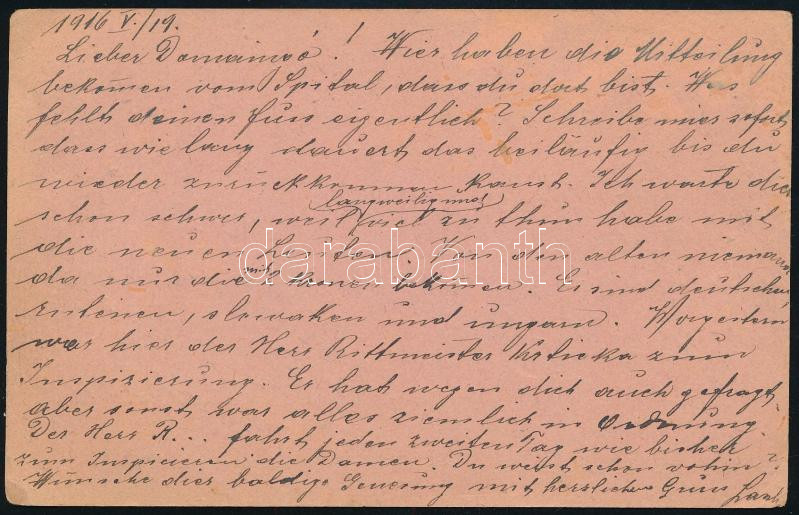 1916 V./19.
Lieber Domaingó! Wier haben die Mitteilung
bekomen vom Spital, dass du dort bist. Was
fehlt deinen fuss eigentlich? Schreibe mier sofort
dass wie lang dauert das beiläufig bis du
wieder zurückkommen kanst. Ich warte dich
langweilig und
schon schwer, weil viel zu thun habe mit
die neuen Leuten. Von den alten niemand
da nur die mit bekomen. Es sind deutsche,
rutenen, slowaken und ungarn. Vorgestern
war hier der Herr Rittmeister Krticka zum
Inspizierung. Er hat wegen dich auch gefragt,
aber sonst war alles ziemlich in Ordnung.
Der Herr R... fahrt jeden zweiten Tag wie bisher
zum Inspicieren die Damen. Du weist schon vohin?
Wünsche dier baldige Genesung mit herzlichen Gruss
darabanth